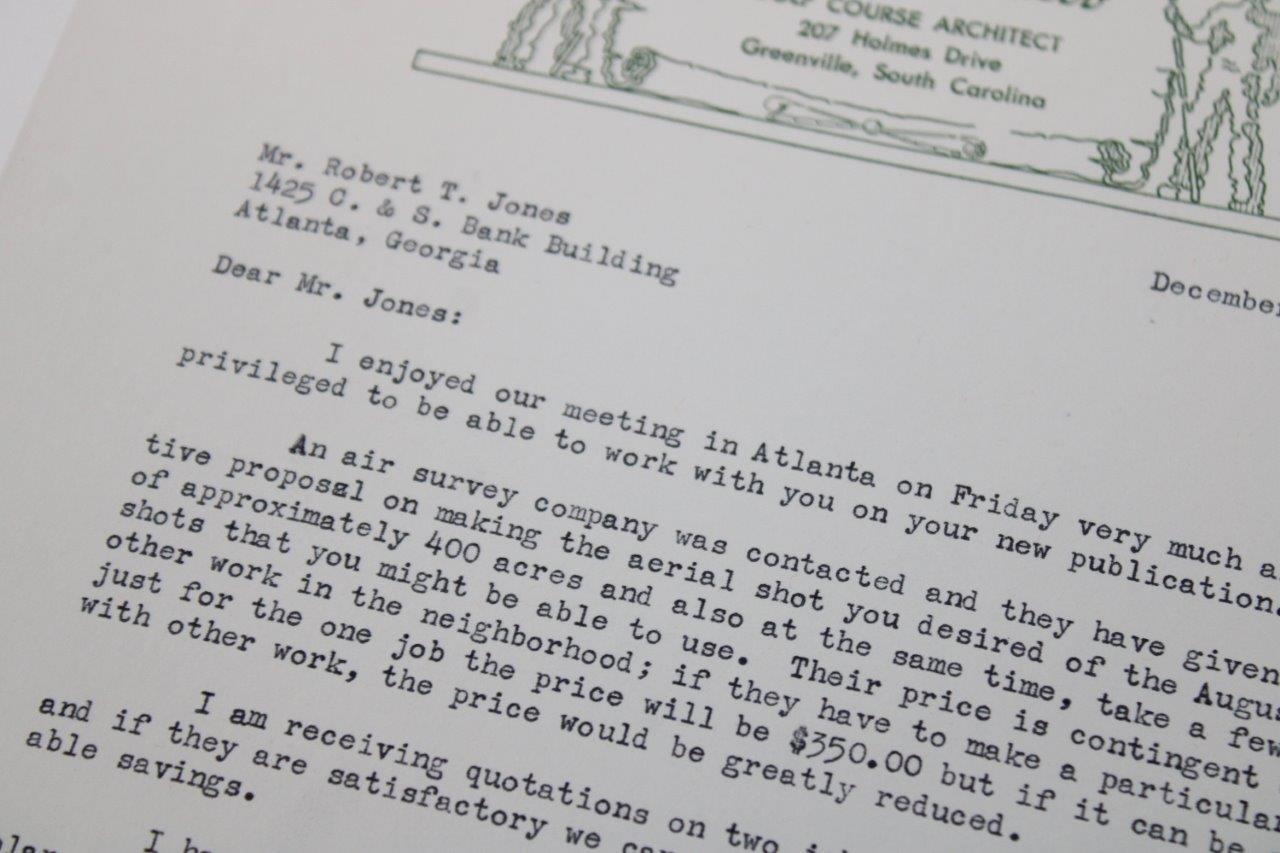 COURSE ARCHITECT
207 Holmes Drive
Greenville, South Carolina
Mr. Robert T. Jones
1425 C. & S. Bank Building
Atlanta, Georgia
December
Dear Mr. Jones:
I enjoyed our meeting in Atlanta on Friday very much
privileged to be able to work with you on your new publication
An air survey company was contacted and they have given
tive proposal on making the aerial shot you desired of the Augus
of approximately 400 acres and also at the same time, take a few
shots that you might be able to use. Their price is contingent
other work in the neighborhood; if they have to make a particular
just for the one job the price will be $350.00 but if it can be
with other work, the price would be greatly reduced.
I am receiving quotations on two
and if they are satisfactory we
able savings.
I